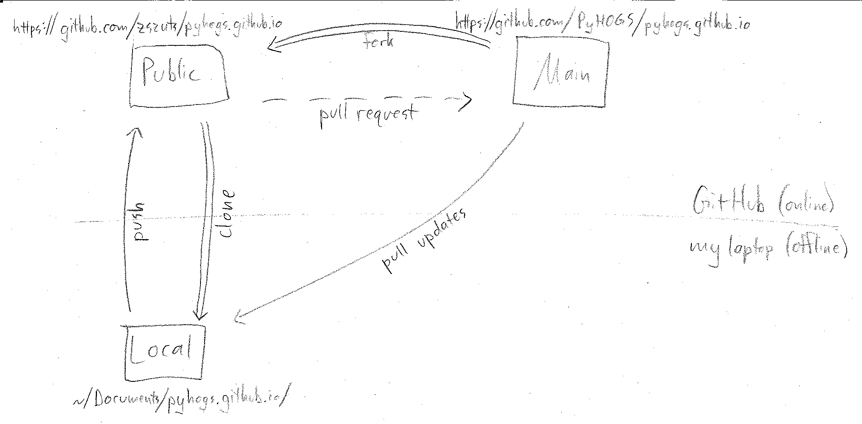 https://github.com/zszuts/pyhogs.github.io
https://github.com/PyHOGS/pyhogs.github.io
fork
Public
Main
pull request
push
clone
pull updates
GitHub (online)
my laptop (offline)
Local
~/Documents/pyhogs.github.io/